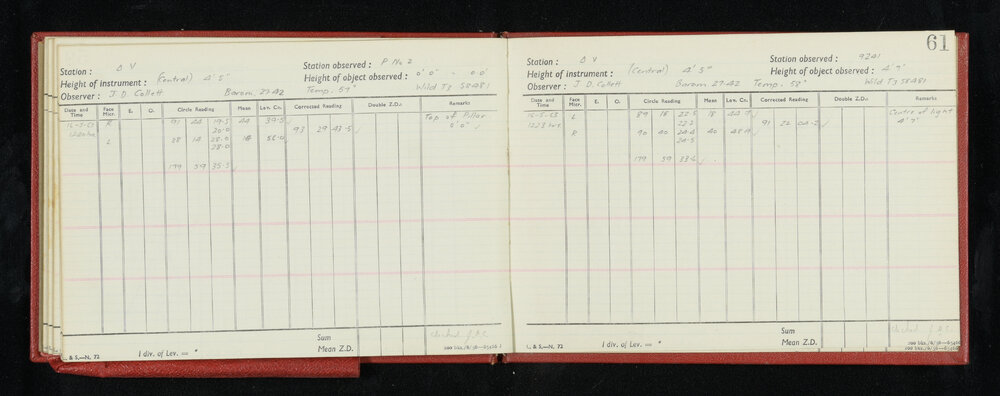 61
Station : Δ V Station observed : P No 2
Height of instrument : (Central) 4' 5" Height of object observed : 0' 0" - 0.0'
Observer : J D Collett Barom. 27.42 Temp. 59° Wild T3 58481
Date and Time Face Micr. E. O. Circle Reading Mean Lev. Co. Corrected Reading Double Z.D.: Remarks
16-5-63 R 91 44 19.5 44 39.5 Top of Pillar
20.0 93 29 43.5 0' 0"
L 88 14 28.0
28.0
179 59 35.5
Sum
Mean Z.D.
Checked
L. & S.—N. 72 1 div. of Lev. = "
Station : Δ V Station observed : 9241
Height of instrument : (Central) 4' 5" Height of object observed : 4' 7"
Observer : J. D. Collett Barom 27.42 Temp. 58° Wild T3 58481
Date and Time Face Micr. E. O. Circle Reading Mean Lev. Co. Corrected Reading Double Z.D.: Remarks
16-5-63 L 89 18 22.5 18 44.7 Centre of light
22.2 91 22 04.2 4' 7"
R 90 40 24.4 40 48.9
24.5
179 59 33.6
Sum
Mean Z.D.
Checked
L. & S.—N. 72 1 div. of Lev. = "